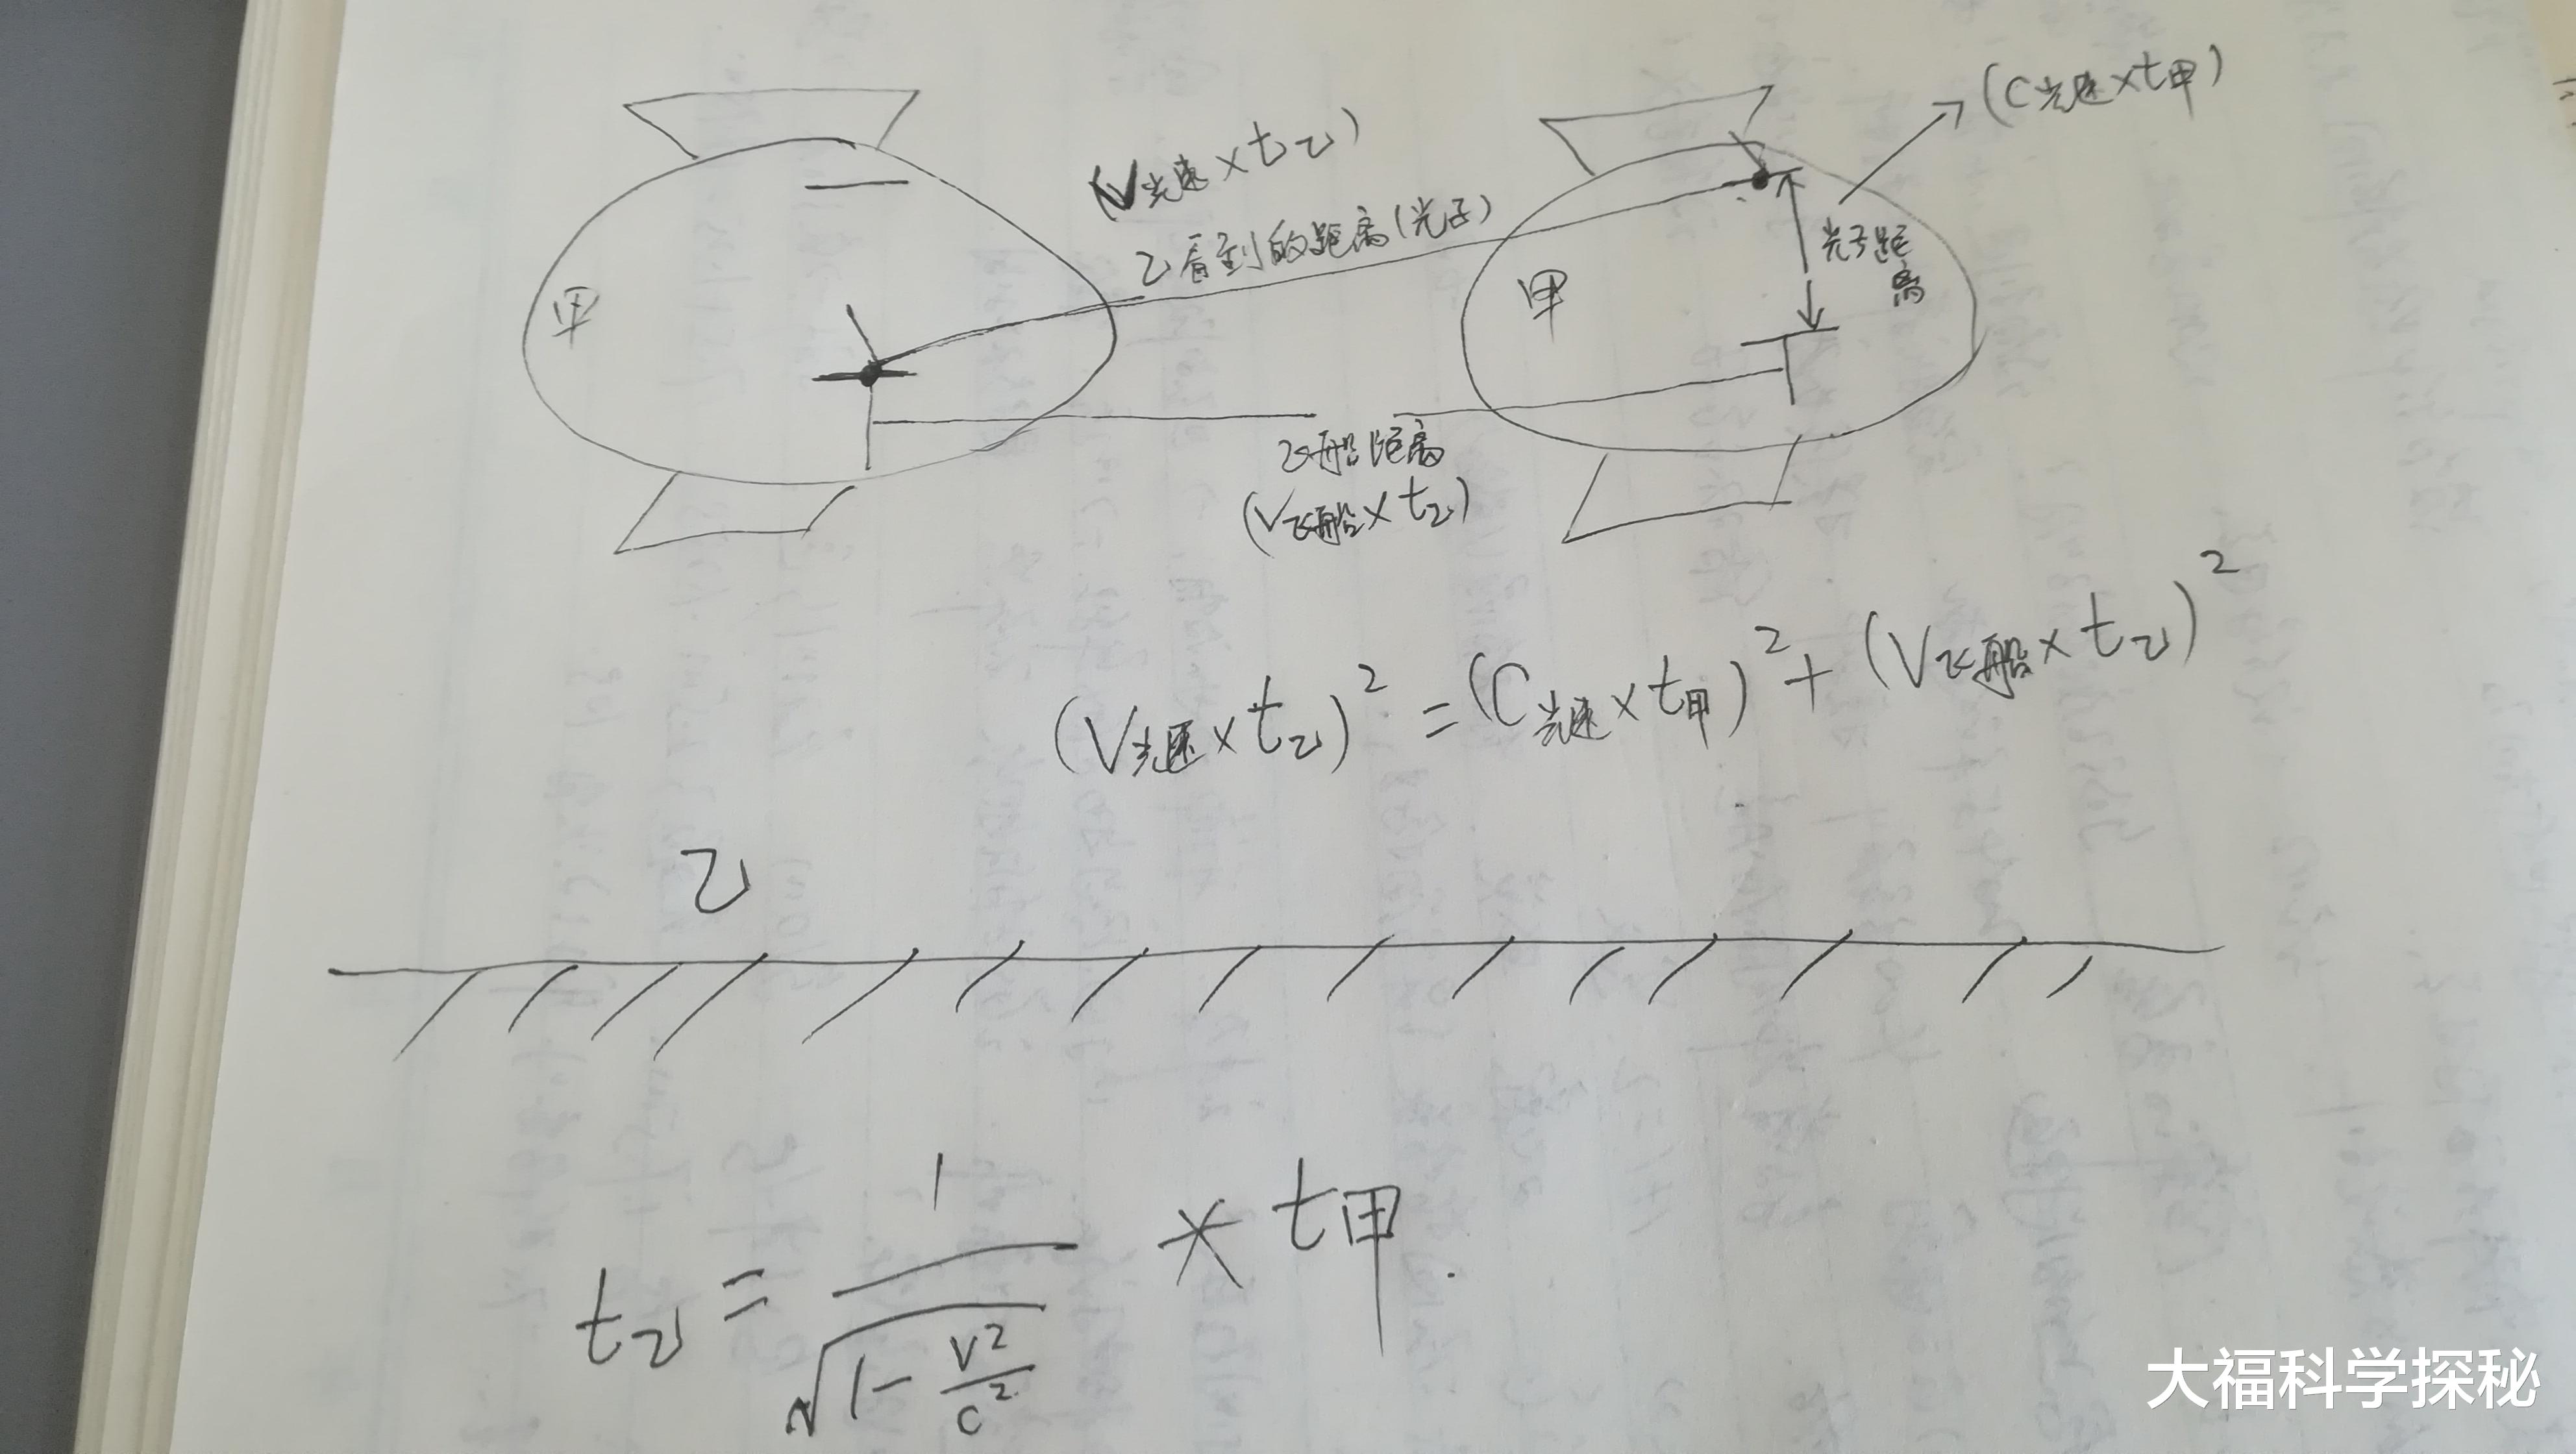 (C光速×t甲)
(V光速×t乙)
乙看到的距离(光子)
光子距
离
甲
甲
飞船距离
(V飞船×t乙)
(V光速×t乙)²=(C光速×t甲)²+(V飞船×t乙)²
乙
t乙=1/√(1-v²/c²)*t甲.
大福科学探秘